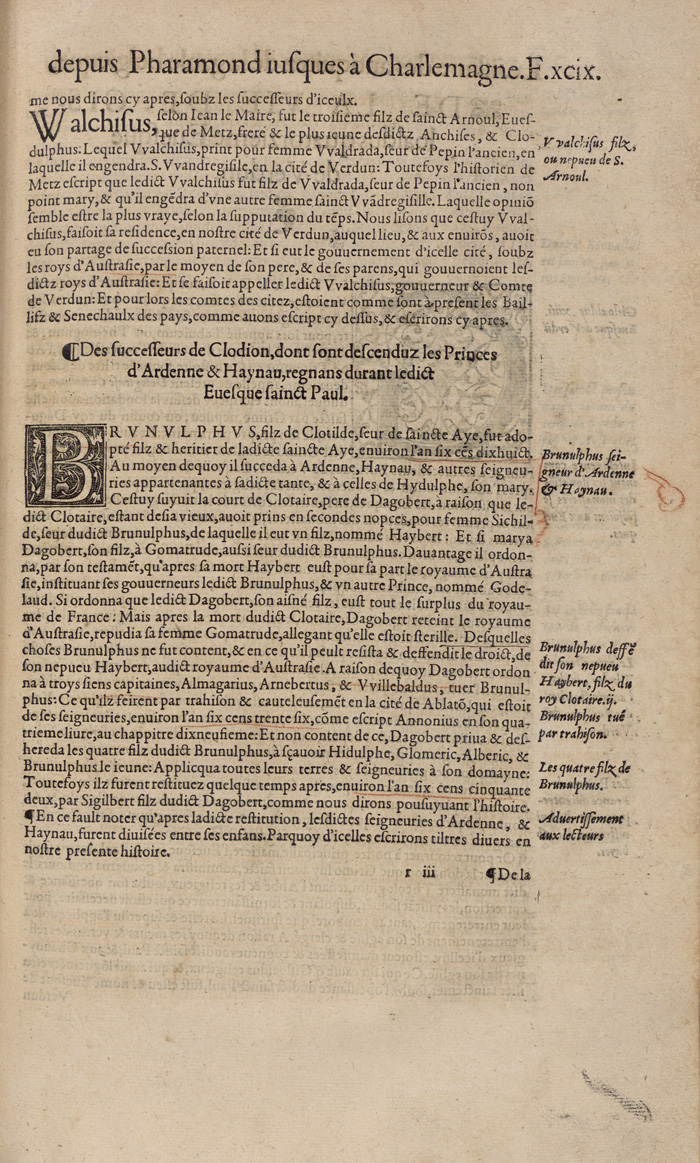 depuis Pharamond iuſques à Charlemagne. F.xcix.
me nous dirons cy apres, ſoubz les ſucceſſeurs d'iceulx.
Walchiſus, ſelon Iean le Maire, fut le troiſieme filz de ſainct Arnoul, Eueſ-
que de Metz, frere & le plus ieune deſdictz Anchiſes, & Clo-
dulphus: Lequel Vvalchiſus, print pour femme Vvaldrada, ſeur de Pepin l'ancien, en
laquelle il engendra. S. Vvandregiſile, en la cité de Verdun: Touteſoys l'hiſtorien de
Metz eſcript que ledict Vvalchiſus fut filz de Vvaldrada, ſeur de Pepin l'ancien, non
point mary, & qu'il engẽdra d'vne autre femme ſainct Vvãdregiſille. Laquelle opiniõ
ſemble eſtre la plus vraye, ſelon la ſupputation du tẽps. Nous liſons que ceſtuy Vval-
chiſus, faiſoit ſa reſidence, en noſtre cité de Verdun, auquel lieu, & aux enuirõs, auoit
eu ſon partage de ſucceſſion paternel: Et ſi eut le gouuernement d'icelle cité, ſoubz
les roys d'Auſtraſie, par le moyen de ſon pere, & de ſes parens, qui gouuernoient leſ-
dictz roys d'Auſtraſie: Et ſe faiſoit appeller ledict Vvalchiſus, gouuerneur & Comte
de Verdun: Et pour lors les comtes des citez, eſtoient comme ſont à preſent les Bail-
lifz & Senechaulx des pays, comme auons eſcript cy deſſus, & eſcrirons cy apres.
Vvalchiſus filz,
ou nepueu de S.
Arnoul.
¶Des ſucceſſeurs de Clodion, dont ſont deſcenduz les Princes
d'Ardenne & Haynau, regnans durant ledict
Eueſque ſainct Paul.
BRVNVLPHVS, filz de Clotilde, ſeur de ſaincte Aye, fut ado-
pté filz & heritier de ladicte ſaincte Aye, enuiron l'an ſix cẽs dixhuict.
Au moyen dequoy il ſucceda à Ardenne, Haynau, & autres ſeigneu-
ries appartenantes à ſadicte tante, & à celles de Hydulphe, ſon mary.
Ceſtuy ſuyuit la court de Clotaire, pere de Dagobert, à raiſon que le-
dict Clotaire, eſtant deſia vieux, auoit prins en ſecondes nopces, pour femme Sichil-
de, ſeur dudict Brunulphus, de laquelle il eut vn filz, nommé Haybert: Et ſi marya
Dagobert, ſon filz, à Gomatrude, auſsi ſeur dudict Brunulphus. Dauantage il ordon-
na, par ſon teſtamẽt, qu'apres ſa mort Haybert euſt pour ſa part le royaume d'Auſtra
ſie, inſtituant ſes gouuerneurs ledict Brunulphus, & vn autre Prince, nommé Gode-
laud. Si ordonna que ledict Dagobert, ſon aiſné filz, euſt tout le ſurplus du royau-
me de France: Mais apres la mort dudict Clotaire, Dagobert reteint le royaume
d'Auſtraſie, repudia ſa femme Gomatrude, allegant qu'elle eſtoit ſterille. Deſquelles
choſes Brunulphus ne fut content, & en ce qu'il peult reſiſta & deffendit le droict, de
ſon nepueu Haybert, audict royaume d'Auſtraſie. A raiſon dequoy Dagobert ordon
na à troys ſiens capitaines, Almagarius, Arnebertus, & Vvillebaldus, tuer Brunul-
phus: Ce qu'ilz feirent par trahiſon & cauteleuſemẽt en la cité de Ablatõ, qui eſtoit
de ſes ſeigneuries, enuiron l'an ſix cens trente ſix, cõme eſcript Annonius en ſon qua-
trieme liure, au chappitre dixneufieme: Et non content de ce, Dagobert priua & deſ-
hereda les quatre filz dudict Brunulphus, à ſçauoir Hidulphe, Glomeric, Alberic, &
Brunulphus le ieune: Applicqua toutes leurs terres & ſeigneuries à ſon domayne:
Touteſoys ilz furent reſtituez quelque temps apres, enuiron l'an ſix cens cinquante
deux, par Sigilbert filz dudict Dagobert, comme nous dirons pouſuyuant l'hiſtoire.
¶En ce fault noter qu'apres ladicte reſtitution, leſdictes ſeigneuries d'Ardenne, &
Haynau, furent diuiſées entre ſes enfans. Parquoy d'icelles eſcrirons tiltres diuers en
noſtre preſente hiſtoire.
Brunulphus ſei-
gneur d'Ardenne
& Haynau.
Brunulphus deffẽ
dit ſon nepueu
Haybert, filz du
roy Clotaire.ij.
Brunulphus tué
par trahiſon.
Les quatre filz de
Brunulphus.
Aduertiſſement
aux lecteurs
r iii ¶De la